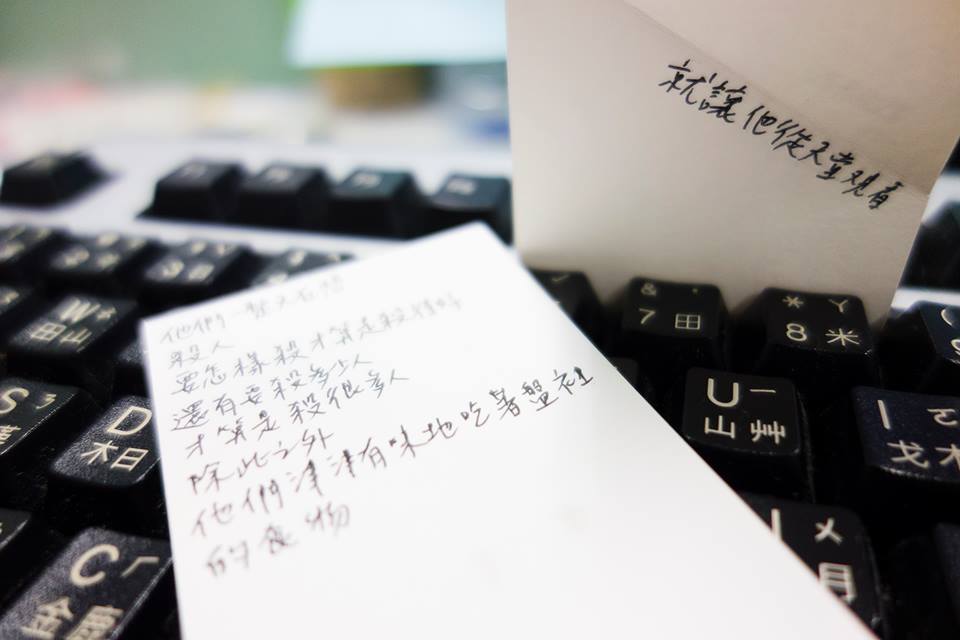 就讓他從天堂观看
他們一整天
殺人
要怎樣殺才算是殺得好
還有要殺多少人
才算是殺很多人
除此之外
他們津津有味地吃著盤裡
的食物
&
7 田
* Y
8 米
W
田
U ㄧ
山
I
戈
S
D
木日
C ㄏ
金
ㄨ